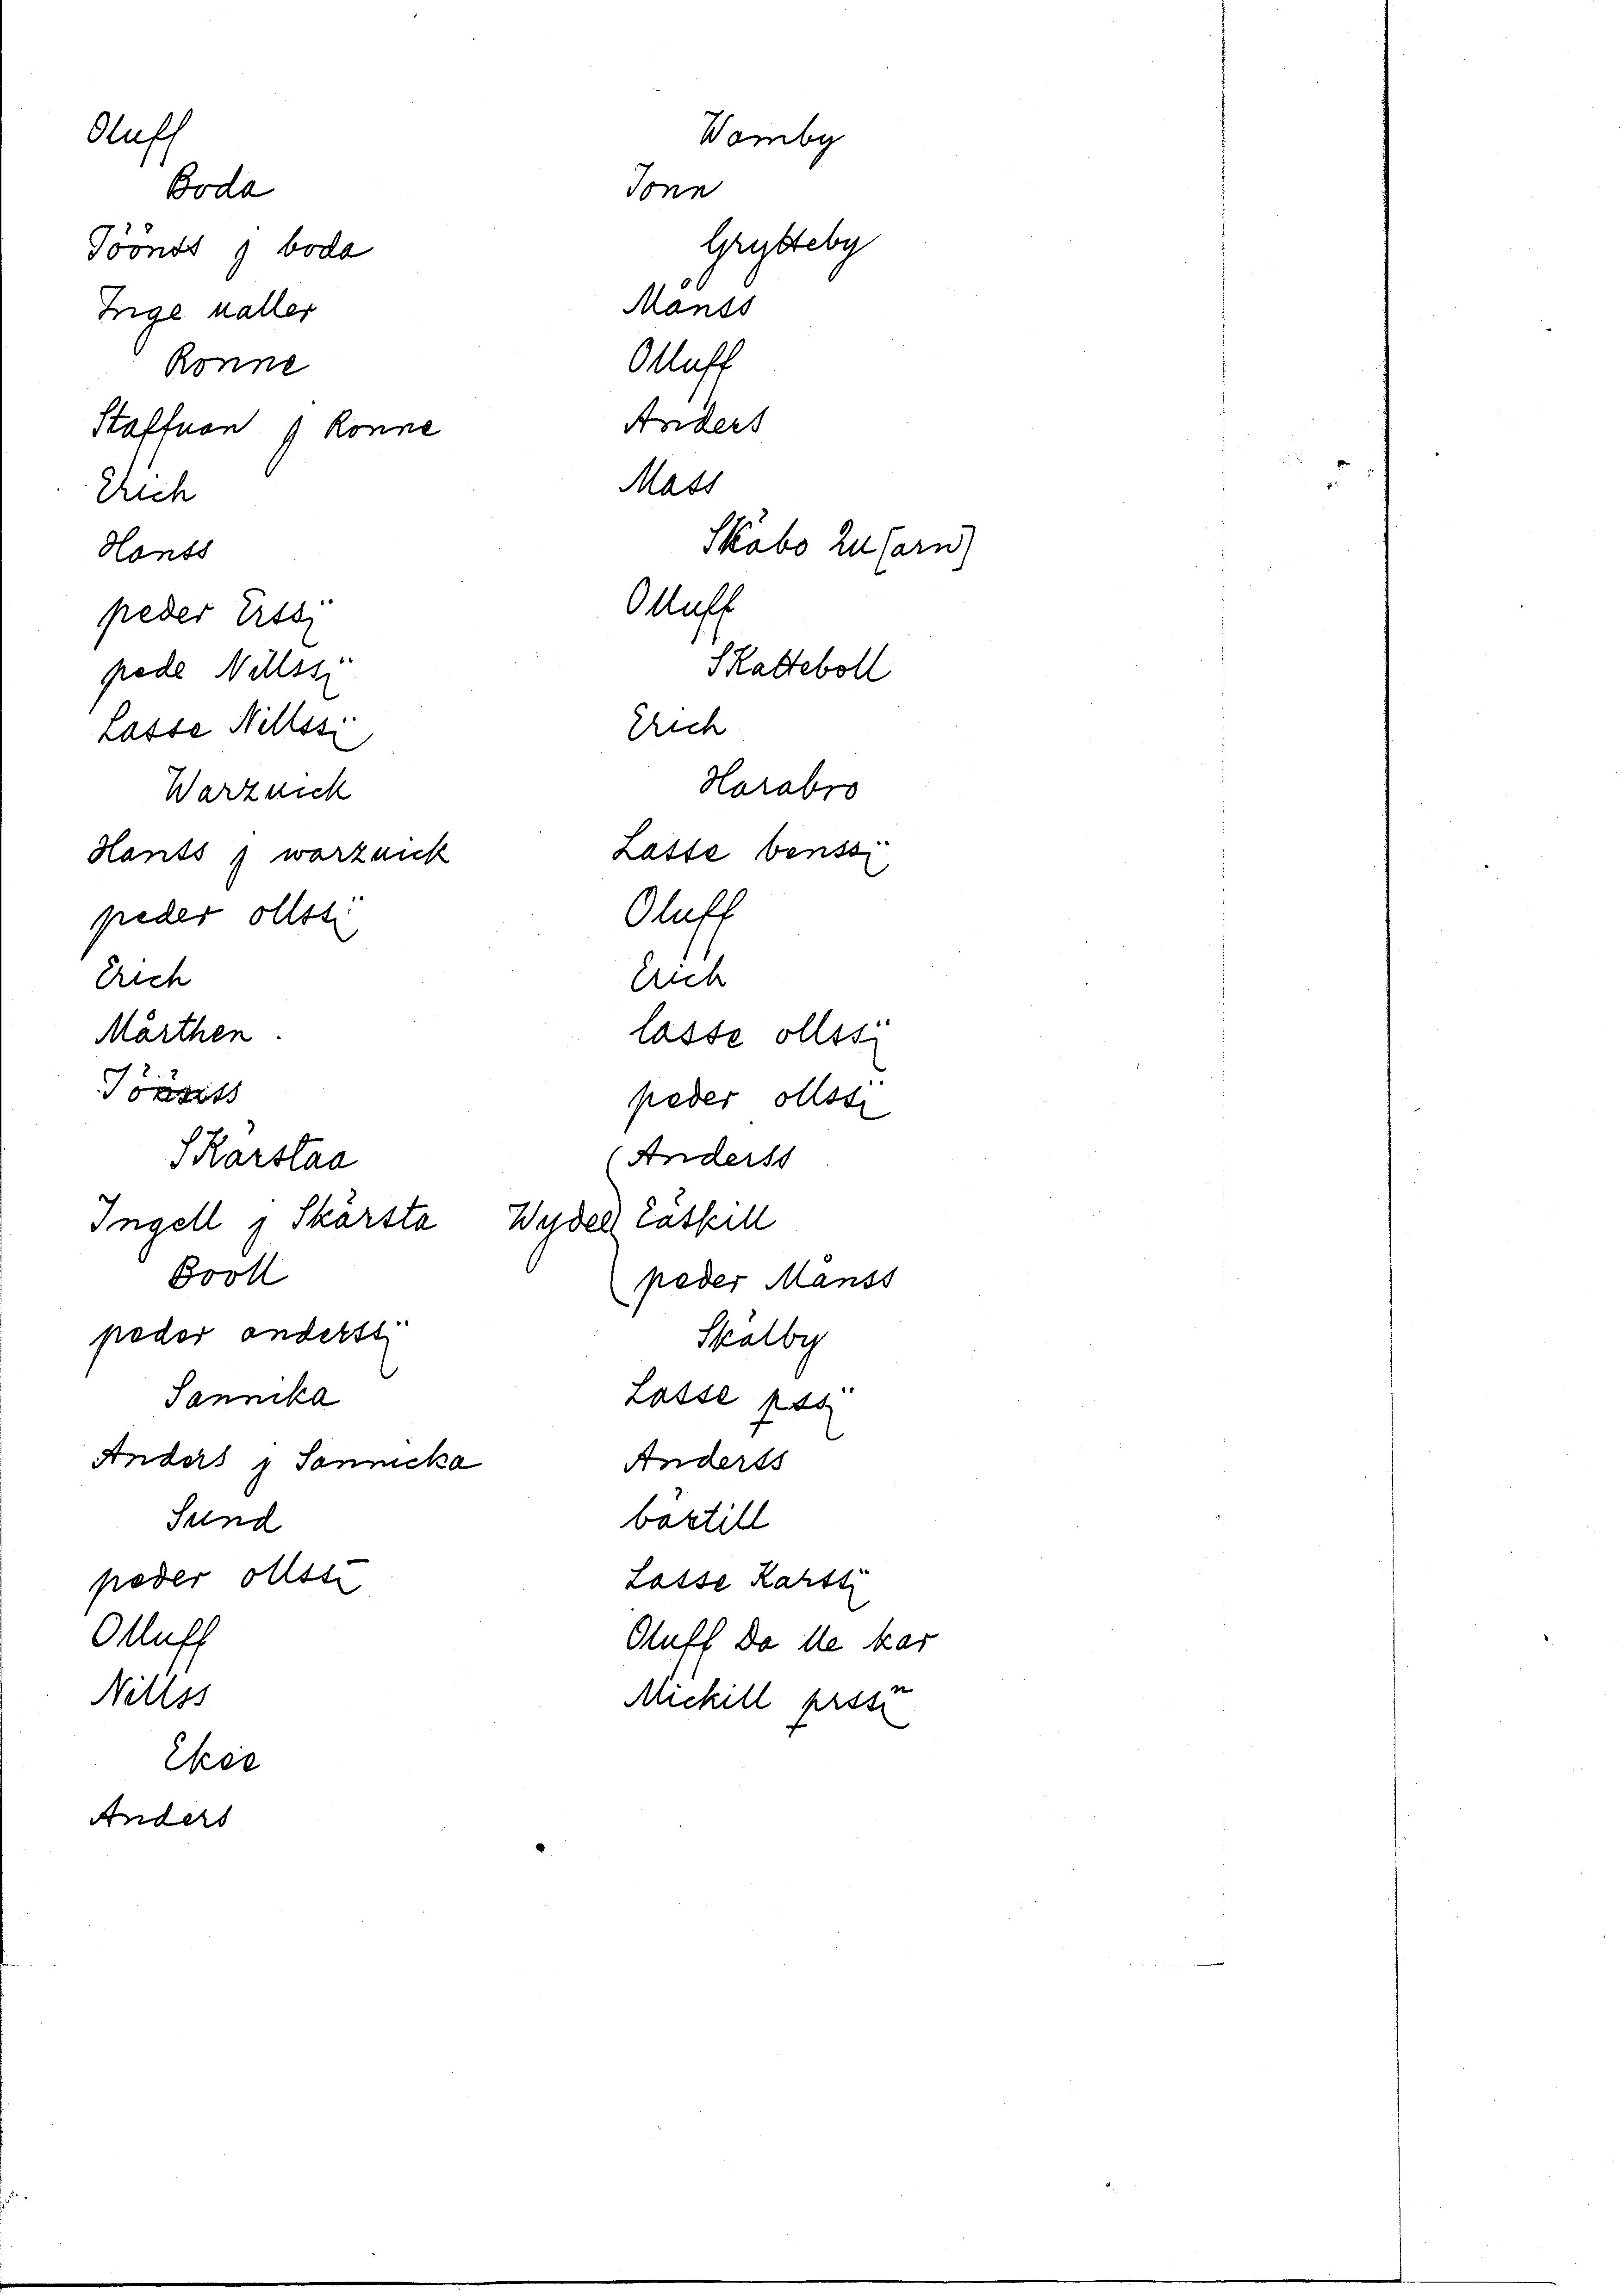 Oluff
Boda
Töönss j boda
Inge naller
Ronne
Staffuan j Ronne
Erich
Hanss
peder Erssӱ
pede Nillssӱ
Lasse Nillssӱ
Warzuick
Hanss j warzuick
peder ollssӱ
Erich
Mårthen
Skärstaa
Ingell j Skärsta
Booll
peder anderssӱ
Sannika
Anders j Sannicka
Sund
peder ollssӱ
Olluff
Nillss
Ekee
Anders
Womby
Jonn
Grytteby
Månss
Olluff
Anders
Mass
Skäbo
Olluff
Skatteboll
Erich
Harabro
Lasse benssӱ
Oluff
Erich
lasse ollssӱ
peder ollssӱ
Anderss
Wydel Eäskill
peder Månss
Skälby
Lasse pssӱ
Anderss
bärtill
Lasse Karssӱ
Oluff Da lle kar
Mickill